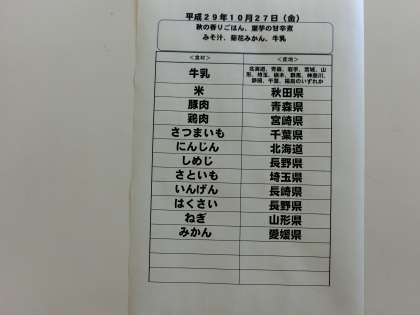 平成29年10月27日（金）
秋の香りごはん、里芋の甘辛煮
みそ汁、菊花みかん、牛乳
＜食材＞ ＜産地＞
牛乳 北海道、青森、岩手、宮城、山
形、埼玉、栃木、群馬、神奈川、
静岡、千葉、福島のいずれか
米 秋田県
豚肉 青森県
鶏肉 宮崎県
さつまいも 千葉県
にんじん 北海道
しめじ 長野県
さといも 埼玉県
いんげん 長崎県
はくさい 長野県
ねぎ 山形県
みかん 愛媛県